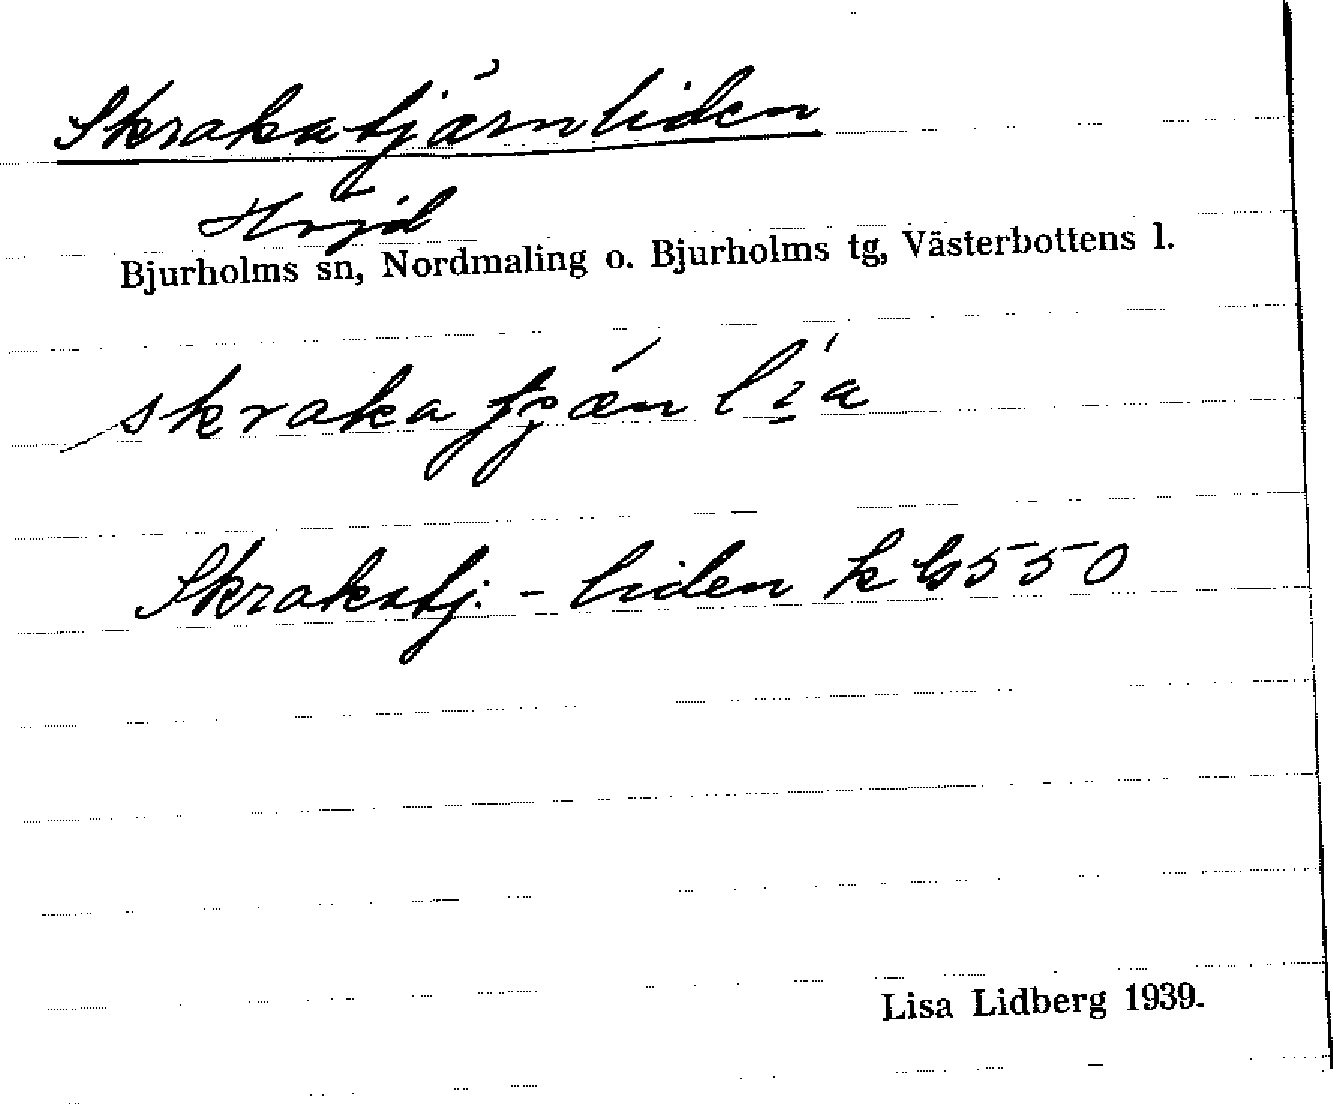 Skrakatjärnliden
Höjd
Bjurholms sn, Nordmaling o. Bjurholms tg, Västerbottens l.
skraka
Skrakatj.-liden k G 550
Lisa Lidberg 1939.